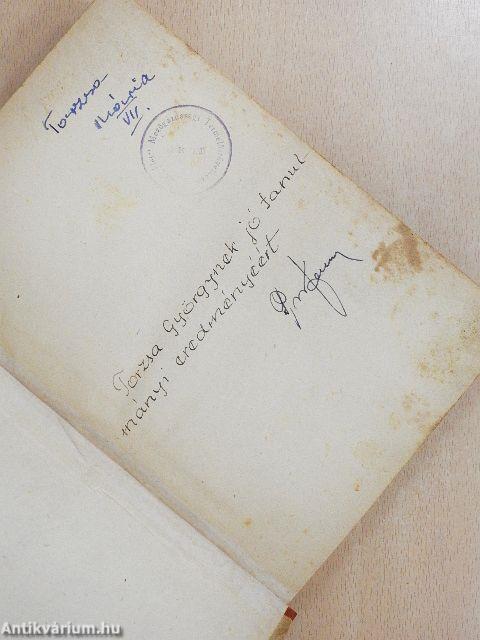 Torzsa
Mária
VII.
Mezőgazdasági
Torzsa Györgynek jó tanul
mányi eredményéért
Antikvárium.hu